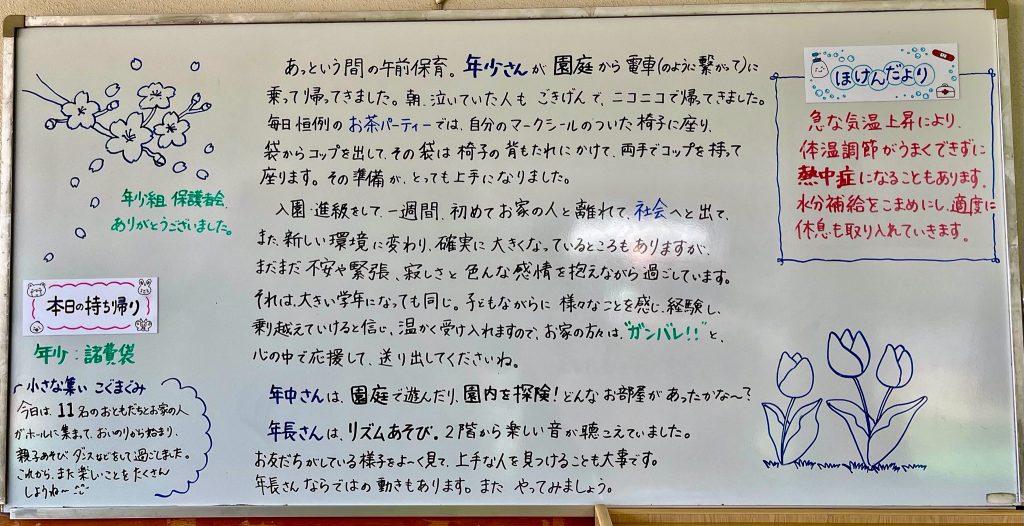 あっという間の午前保育。年少さんが園庭から電車(のように繋がって)に
乗って帰ってきました。朝、泣いていた人もごきげんで、ニコニコで帰ってきました。
毎日恒例のお茶パーティーでは、自分のマークシールのついた椅子に座り、
袋からコップを出して、その袋は椅子の背もたれにかけて、両手でコップを持って
座ります。その準備が、とっても上手になりました。
入園・進級をして、一週間、初めてお家の人と離れて、社会へと出て、
また、新しい環境に変わり、確実に大きくなっているところもありますが、
まだまだ不安や緊張、寂しさと色んな感情を抱えながら過ごしています。
それは、大きい学年になっても同じ。子どもながらに様々なことを感じ、経験し、
乗り越えていけると信じ、温かく受け入れますので、お家の方々は、"ガンバレ!!"と、
心の中で応援して、送り出してくださいね。
年中さんは、園庭で遊んだり、園内を探険!どんなお部屋があったかな〜?
年長さんは、リズムあそび。2階から楽しい音が聴こえていました。
お友だちがしている様子をよ〜く見て、上手な人を見つけることも大事です。
年長さんならではの動きもあります。またやってみましょう。
年少組 保護者会、
ありがとうございました。
本日の持ち帰り
年少:諸費袋
小さな集い こぐまぐみ
今日は、11名のおともだちとお家の人
がホールに集まって、おいのりから始まり、
親子あそび ダンスなどをして過ごしました。
これから、また楽しいことをたくさん
しようね〜
ほけんだより
急な気温上昇により、
体温調節がうまくできずに
熱中症になることもあります。
水分補給をこまめにし、適度に
休息も取り入れていきます。